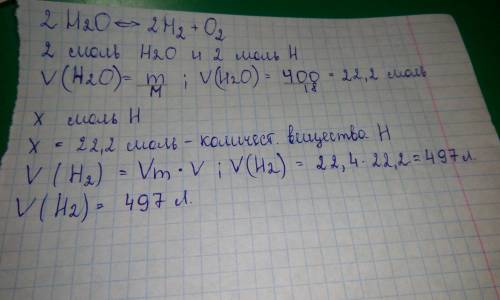 2 H2O ⇔ 2H2 + O2
2 моль H2O и 2 моль H
V(H2O) = m/M ; V(H2O) = 400/18 = 22,2 моль
x моль H
x = 22,2 моль - количест. вещества H
V(H2) = Vm · V ; V(H2) = 22,4 · 22,2 = 497 л.
V(H2) = 497 л.